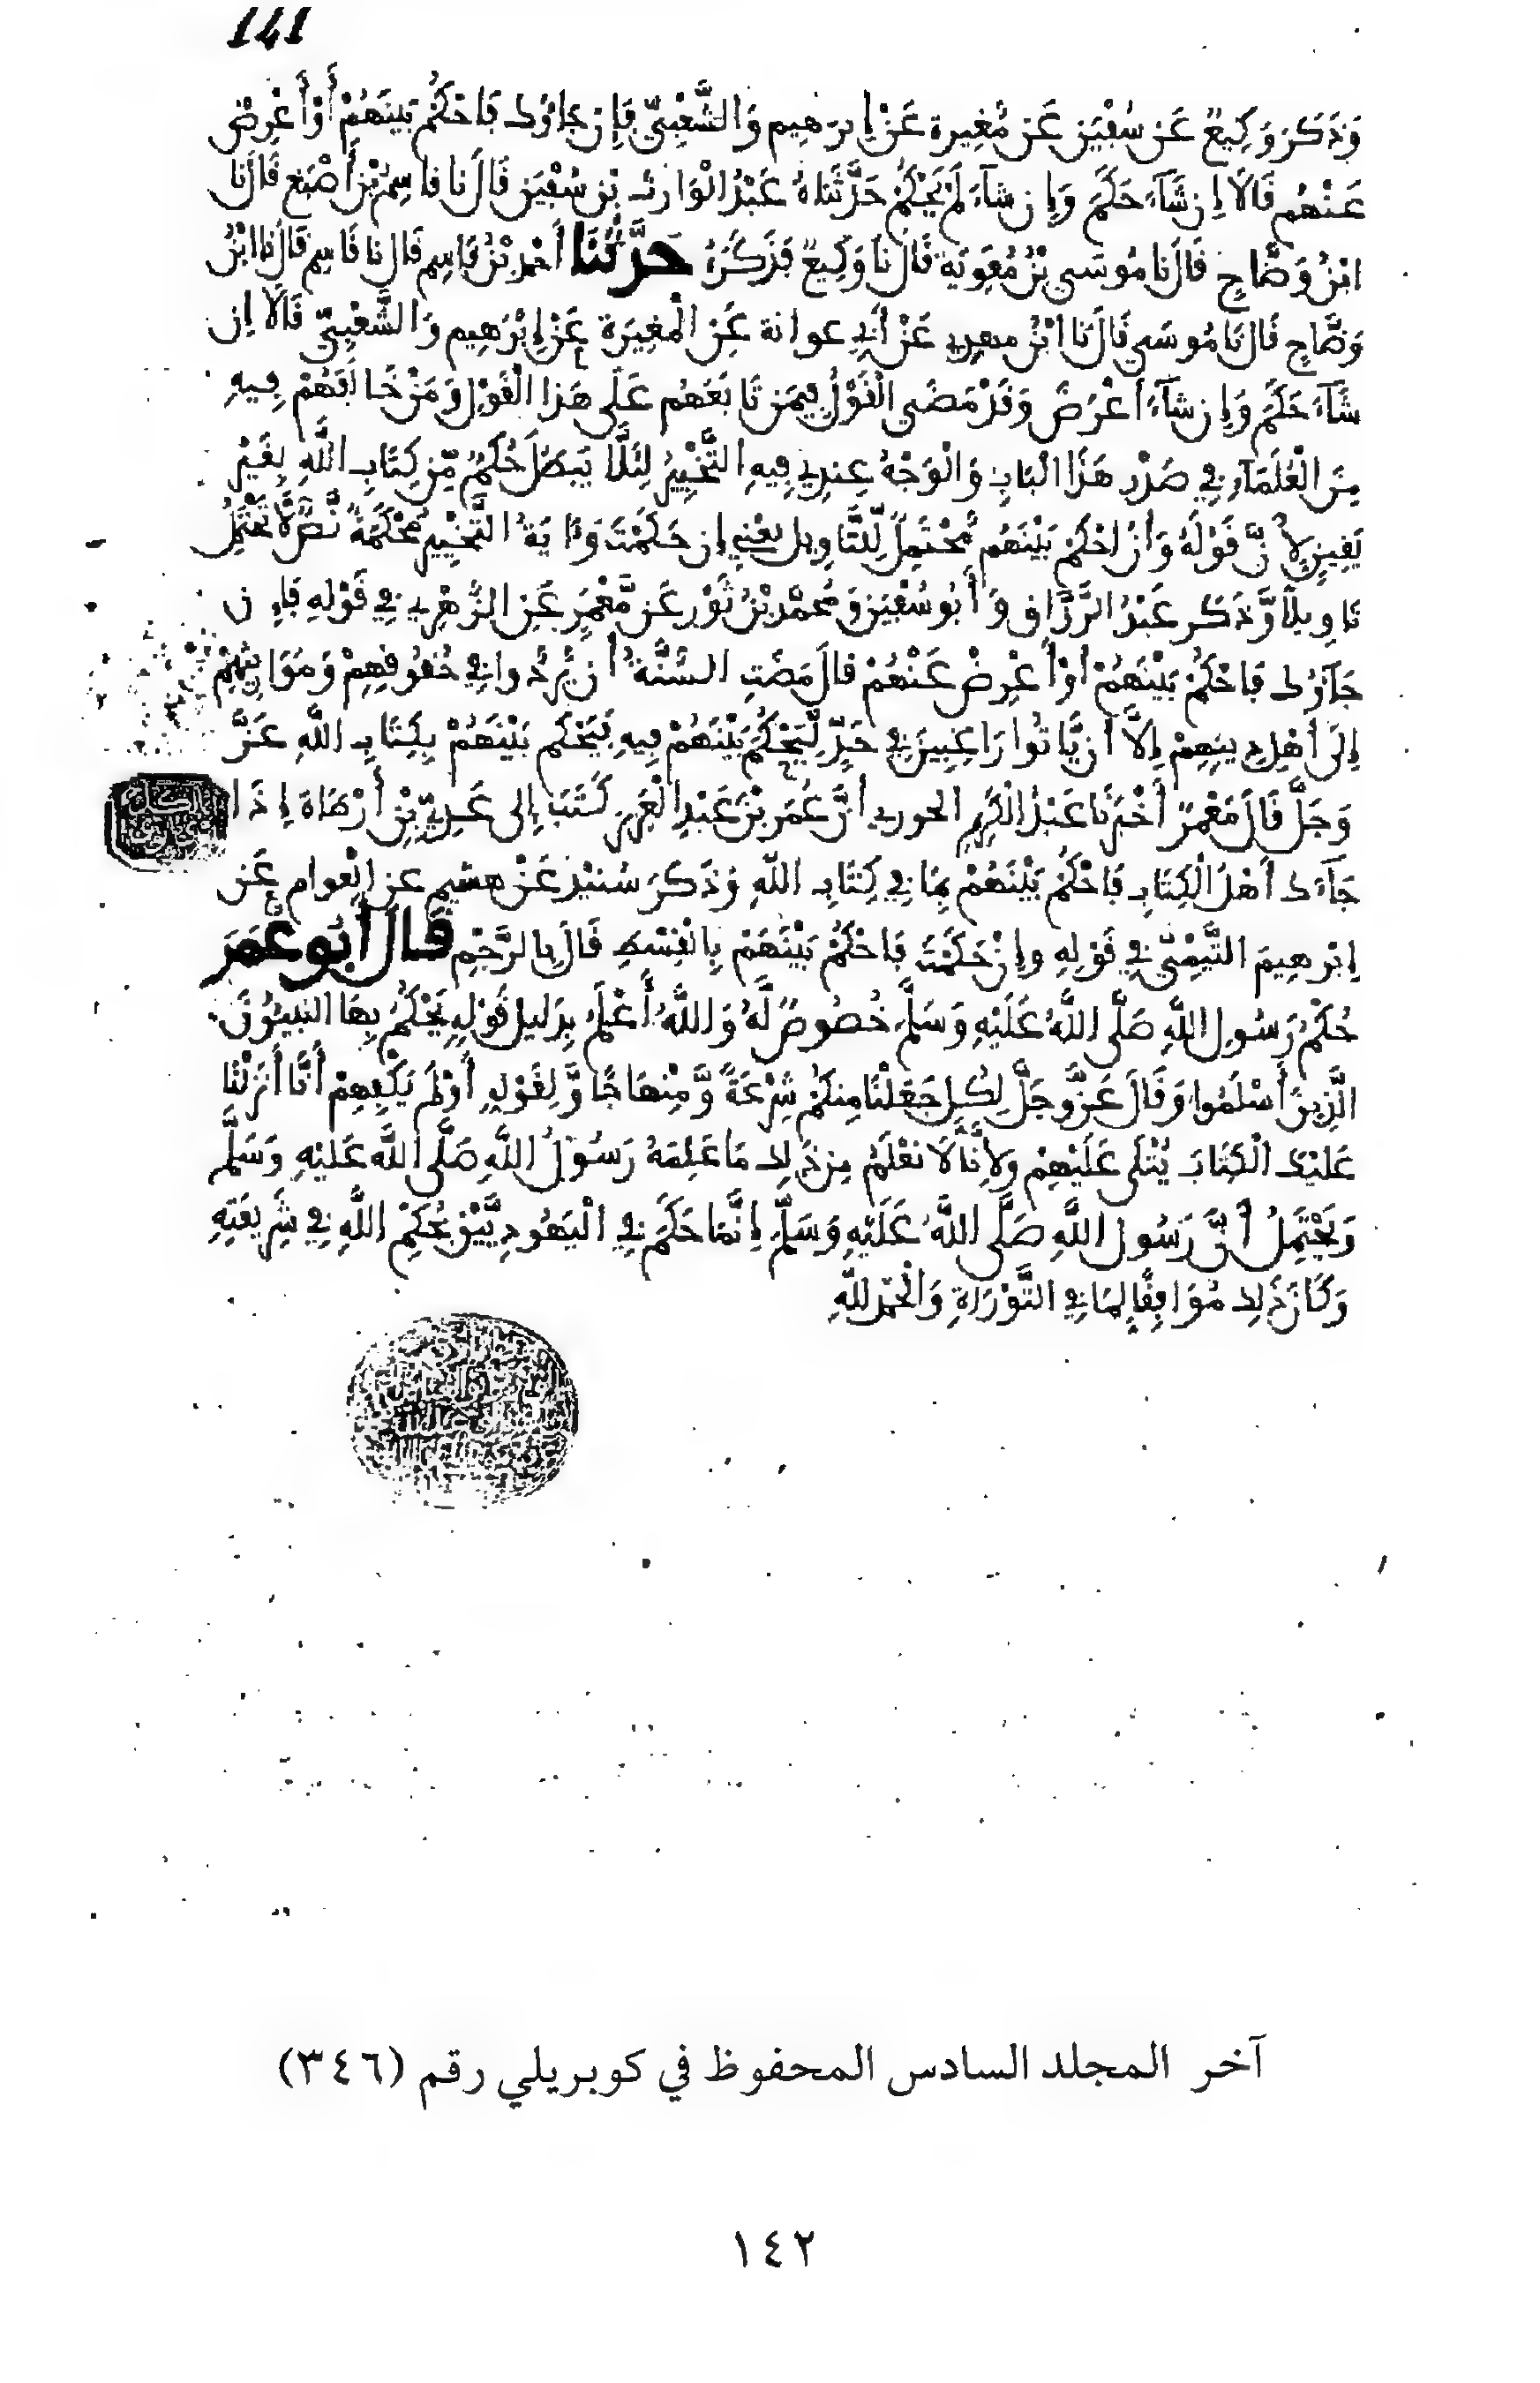 141
وَذَكَرَ وَكِيعٌ عَن سُفْيَن عَن مُّغِيرة عَنْ إِبرَهِيم وَالشَّعْبِيِّ فَإِن جَاؤُك فَاحْكُم بَيْنَهُمْ أَوْ أَعْرِضْ
عَنْهُم قَالَا إِن شَآءَ حَكَمَ وَإِن شَآءَ لَمْ يَحْكُمْ حَدَّثَنَاهُ عَبْدُ الْوَارِث بْن سُفْيَن قَالَ نَا قَاسِمُ بْنُ أَصْبَغ قَالَ نَا
ابْنُ وَضَّاحٍ قَالَ نَا مُوسَى بْنُ مُعَوِيَة قَالَ نَا وَكِيعٌ فَذَكَرَهُ حَدَّثَنَا أَحْمَد بْنُ قَاسِم قَالَ نَا قَاسِم قَالَ نَا ابْنُ
وَضَّاحٍ قَالَ نَا مُوسَى قَالَ نَا ابْنُ مهدي عَنْ أَبِي عوانة عَنِ الْمُغِيَرة عَنْ إِبْرَهِيم وَالشَّعْبِيِّ قَالَا إِن
شَآءَ حَكَمَ وَإِن شَآءَ أَعْرَضَ وَقَدْ مَضَى الْقَوْلُ فِيمَن تَابَعَهُم عَلَى هَذا الْقَوْلِ وَمَنْ خَالَفَهُمْ فِيهِ
مِنَ الْعُلَمَآءِ فِي صَدْرِ هَذَا الْبَابِ وَالْوَجْهُ عِنْدِي فِيهِ التَّخْيِيرُ لِئَلَّا يَبطَلَ حُكْمٌ مِّن كِتَابِ اللَّهِ بِغَيْرِ
يَقِينٍ لِأَنَّ قَوْلَهُ وَأَنُ احْكُمْ بَيْنَهُم مُّحْتَمِلٌ لِّلتَّاوِيل يعْنِي إِن حَكَمْتَ وَءَايَةُ التَّخْيِيرِ مُحْكَمَةٌ نَّصٌّ لَّا يَحْتَمِلُ
تَاوِيلًا وَّذَكَر عَبْدُ الرَّزَّاق وَأَبُو سُفْيَن وَمُحَمَّد بْنُ ثَوْر عَن مَّعْمَرٍ عَنِ الزُّهْرِي فِي قَوْلِهِ فَإِن
جَآءُوك فَاحْكُمْ بَيْنَهُمْ أَوْ أَعْرِضْ عَنْهُمْ قَالَ مَضَتِ السُّنَّةُ أَن يُّرَدُّوا فِي حُقُوقِهِمْ وَمَوَارِيثِهِمْ
إِلَى أَهْلِ دِينِهِمْ إِلَّا أَن يَّاتُوا رَاغِبِينَ فِي حَدٍّ لِّيُحْكُمَ بَيْنَهُمْ فِيهِ فَيَحْكُم بَيْنَهُمْ بِكِتَابِ اللَّهِ عَزَّ
وَجَلَّ قَالَ مَعْمَرٌ أَخْبَرَنَا عَبْدُ الْكَرِيم الجوري أَنَّ عُمَر بْنَ عَبْدِ الْعَزِيزِ كَتَبَ إِلى عَدِيِّ بْنِ أَرْطَاةَ إِذَا
جَآءَك أَهْلُ الْكِتَابِ فَاحْكُمْ بَيْنَهُمْ بِمَا فِي كِتَابِ اللَّهِ وَذَكَرَ سُنَيْد عَنْ هشيم عن الْعوام عَن
إِبْرهِيمَ التَّيْمِيِّ فِي قَوْلِهِ وإِنْ حَكَمْتَ فَاحْكُمْ بَيْنَهُمْ بِالْقِسْطِ قَالَ بِالرَّجْمِ قَالَ أَبُو عُمَرَ
حُكْمُ رَسُولِ اللَّهِ صَلَّى اللَّهُ عَلَيْهِ وَسَلَّمَ خُصُوصٌ لَّهُ وَاللَّهُ أَعْلَمُ بِدَلِيلِ قَوْلِهِ يَحْكُمُ بِهَا النَّبِيئُونَ
الَّذِينَ أَسْلَمُوا وَقَالَ عَزَّ وَجَلَّ لِكُلٍّ جَعَلْنَا مِنكُمْ شِرْعَةً وَّمِنْهَاجًا وَّلِقَوْلِهِ أَوَلَمْ يَكْفِهِمْ أَنَّا أَنزَلْنَا
عَلَيْكَ الْكِتَابَ يُتْلَى عَلَيْهِمْ وَلِأَنَّا لَا نَعْلَمُ مِن ذَلِك مَا عَلِمَهُ رَسُولُ اللَّهِ صَلَّى اللَّه عَلَيْهِ وَسَلَّم
وَيَحْتَمِلُ أَنَّ رَسُول اللَّهِ صَلَّى اللَّهُ عَلَيْهِ وَسَلَّمَ إِنَّمَا حَكَمَ فِي الْيَهُودِيَّيْنِ بِحُكْمِ اللَّهِ فِي شَرِيعَتِهِ
وَكَانَ ذَلِك مُوَافِقًا لِمَا فِي التَّوْرَاةِ وَالْحَمْد لِلَّهِ
آخر المجلد السادس المحفوظ في كوبريلي رقم (٣٤٦)
١٤٢